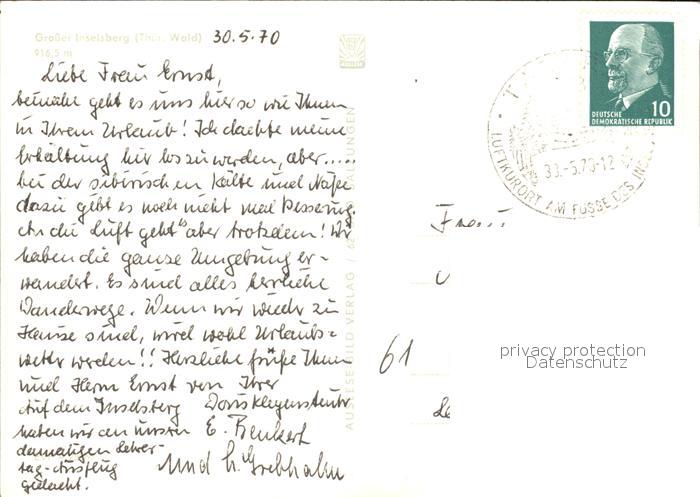 Großer Inselsberg (Thür. Wald) 30.5.70
916,5 m
Liebe Frau Ernst,
beinahe geht es uns hier so wie Ihnen
in Ihrem Urlaub! Ich dachte meine
Erkältung hier los zu werden, aber.....
bei der sibirischen Kälte und Näße
dazu gibt es noch nicht mal Besserung.
An die Luft geht's aber trotzdem! Wir
haben die ganze Umgebung er-
wandert. Es sind alles herrliche
Wanderwege. Wenn wir wieder zu
Hause sind, wird wohl Urlaubs-
wetter werden!! Herzliche Grüße Ihnen
und Herrn Ernst von Ihrer
Auf dem Inselsberg
haben wir an unseren E.
damaligen Lehrer-
tag-Ausflug und
gedacht.
AUSLESE-BILD-VERLAG
DEUTSCHE
DEMOKRATISCHE REPUBLIK 10
30.-5.70-12
LUFTKURORT AM FUSSE DES INSEL
Frau
61
privacy protection
Datenschutz